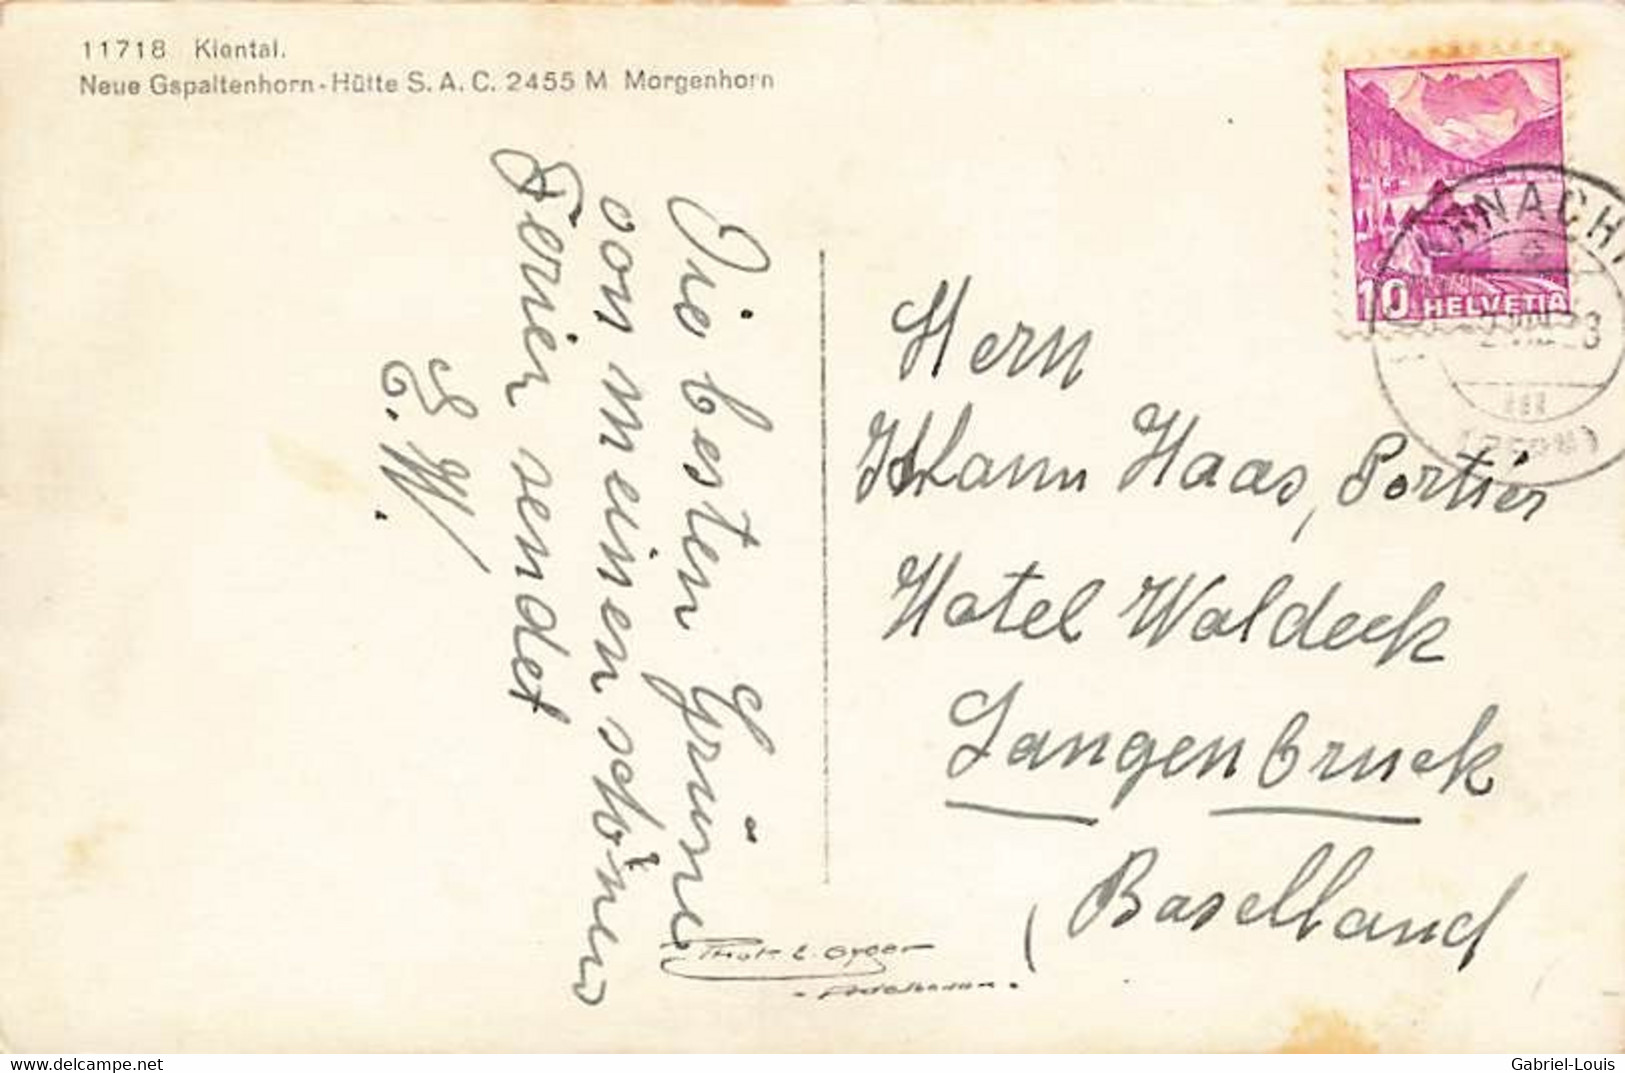 11718 Kiental.
Neue Gspaltenhorn-Hütte S.A.C. 2455 M Morgenhorn
Die besten Grüne
von meinen schönen
Ferien sendet
E. W.
10 HELVETIA
Herrn
Johann Haas, Portier
Hotel Waldeck
Langenbruck
Baselland
Phot. E. Gyger
- Adelboden -
delcampe.net
Gabriel-Louis